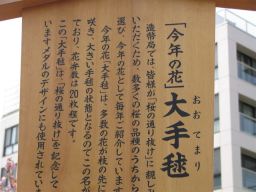 「今年の花」大手毬
おおてまり
造幣局では、皆様が「桜の通り抜け」に親し
いただくため、数多くの桜の品種のうちから
選び、今年の花として毎年ご紹介しています
今年の花「大手毬」は、多数の花が枝の先に
咲き、大きい手毬の状態となるのでこの名が
ており、花弁数は20枚程です。
この「大手毬」は、「桜の通り抜け」を記念して
いますメダルのデザインにも使用されてい